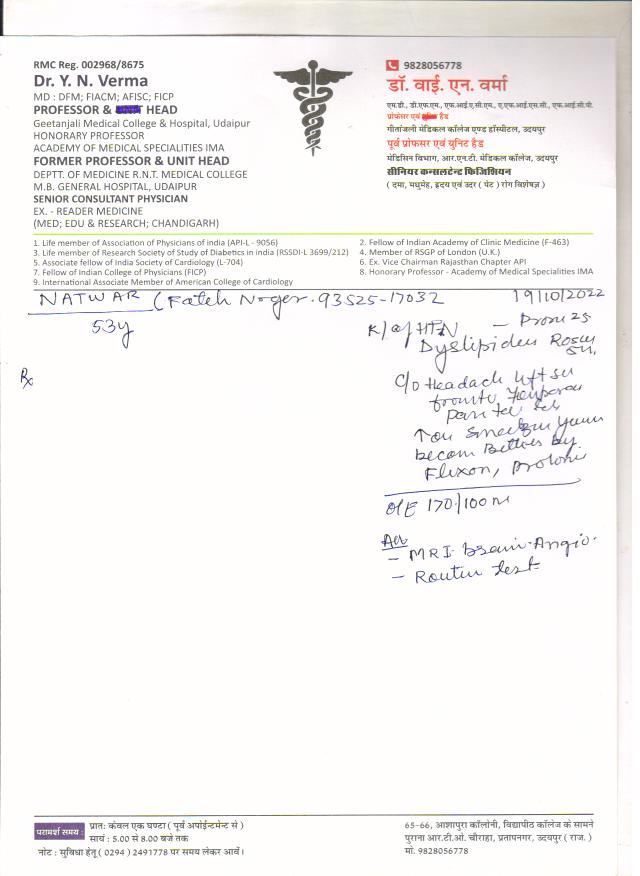 RMC Reg. 002968/8675
Dr. Y. N. Verma
MD : DFM; FIACM; AFISC; FICP
PROFESSOR & HEAD
Geetanjali Medical College & Hospital, Udaipur
HONORARY PROFESSOR
ACADEMY OF MEDICAL SPECIALITIES IMA
FORMER PROFESSOR & UNIT HEAD
DEPTT. OF MEDICINE R.N.T. MEDICAL COLLEGE
M.B. GENERAL HOSPITAL, UDAIPUR
SENIOR CONSULTANT PHYSICIAN
EX. - READER MEDICINE
(MED; EDU & RESEARCH; CHANDIGARH)
9828056778
डॉ. वाई. एन. वर्मा
एम.डी., डी.एफ.एम., एफ.आई.ए.सी.एम., ए.एफ.आई.एस.सी., एफ.आई.सी.पी.
प्रोफेसर एवं यूनिट हैड
गीतांजली मेडिकल कॉलेज एण्ड हॉस्पीटल, उदयपुर
पूर्व प्रोफसर एवं युनिट हैड
मेडिसिन विभाग, आर.एन.टी. मेडिकल कॉलेज, उदयपुर
सीनियर कन्सलटेन्ट फिजिशियन
( दमा, मधुमेह, हृदय एवं उदर ( पेट ) रोग विशेषज्ञ )
1. Life member of Association of Physicians of india (API-L - 9056)
2. Fellow of Indian Academy of Clinic Medicine (F-463)
3. Life member of Research Society of Study of Diabetics in india (RSSDI-L 3699/212)
4. Member of RSGP of London (U.K.)
5. Associate fellow of India Society of Cardiology (L-704)
6. Ex. Vice Chairman Rajasthan Chapter API
7. Fellow of Indian College of Physicians (FICP)
8. Honorary Professor - Academy of Medical Specialities IMA
9. International Associate Member of American College of Cardiology
NATWAR (Fateh Nager. 93525-17032 19/10/2022
53y
K/c/o HTN
Dyslipiden Rosu
Rx
C/o Headach
become Better by
Flexon,
O/E 170/100 m
Adv
- MRI brain Angio.
- Routin test
परामर्श समय :
प्रातः केवल एक घण्टा ( पूर्व अपोईन्टमेन्ट से )
सायं : 5.00 से 8.00 बजे तक
नोट : सुविधा हेतू ( 0294 ) 2491778 पर समय लेकर आवें।
65-66, आशापुरा कॉलोनी, विद्यापीठ कॉलेज के सामने
पुराना आर.टी.ओ. चौराहा, प्रतापनगर, उदयपुर ( राज. )
मो. 9828056778